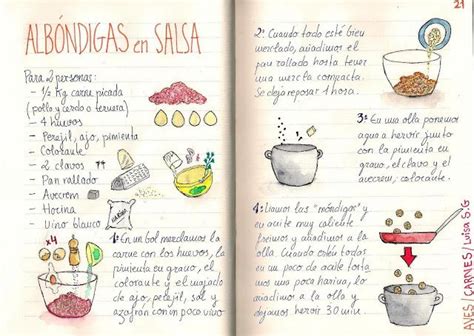 ALBÓNDIGAS en SALSA
Para 2 personas:
- 1/2 Kg carne picada
(pollo y cerdo o ternera)
- 4 huevos
- Perejil, ajo, pimienta
- Colorante
- 2 clavos
- Pan rallado
- Avecrem
- Harina
- Vino blanco
HARINA
x4
1º En un bol mezclamos la
carne con los huevos, la
pimienta en grano, el
colorante y el majado
de ajo, perejil, sal y
azafran con un poco vino
21
2º Cuando todo esté bien
mezclado, añadimos el
pan rallado hasta tener
una mezcla compacta.
Se deja reposar 1 hora.
3º En una olla ponemos
agua a hervir junto
con la pimienta en
grano, el clavo y el
avecrem, colorante.
4º Vamos los "móndigos" y
en aceite muy caliente
freimos y añadimos a la
olla. Cuando estén todas
en un poco de aceite tosta
mos una poca harina, lo
añadimos a la olla y
dejamos hervir 30 min.
NES/CARNES/